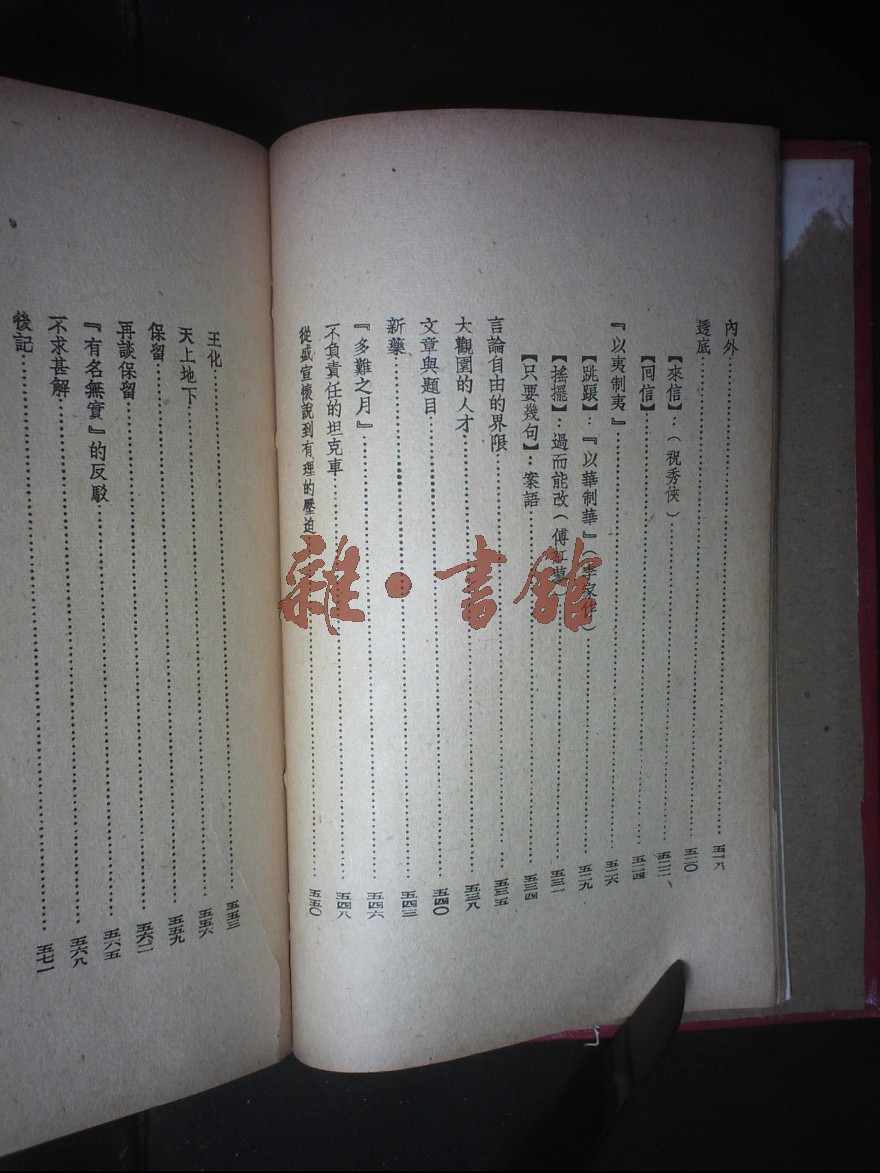 內外……五一八
透底……五二〇
【來信】：（祝秀俠）……五二二
【回信】……五二四
『以夷制夷』……五二六
【跳踉】：『以華制華』（李家作）……五二九
【搖擺】：過而能改（傅紅蓼）……五三一
【只要幾句】：案語……五三四
言論自由的界限……五三五
大觀園的人才……五三八
文章與題目……五四〇
新藥……五四三
『多難之月』……五四六
不負責任的坦克車……五四八
從盛宣懷說到有理的壓迫……五五〇
王化……五五三
天上地下……五五六
保留……五五九
再談保留……五六二
『有名無實』的反駁……五六五
不求甚解……五六八
後記……五七一
雜·書館